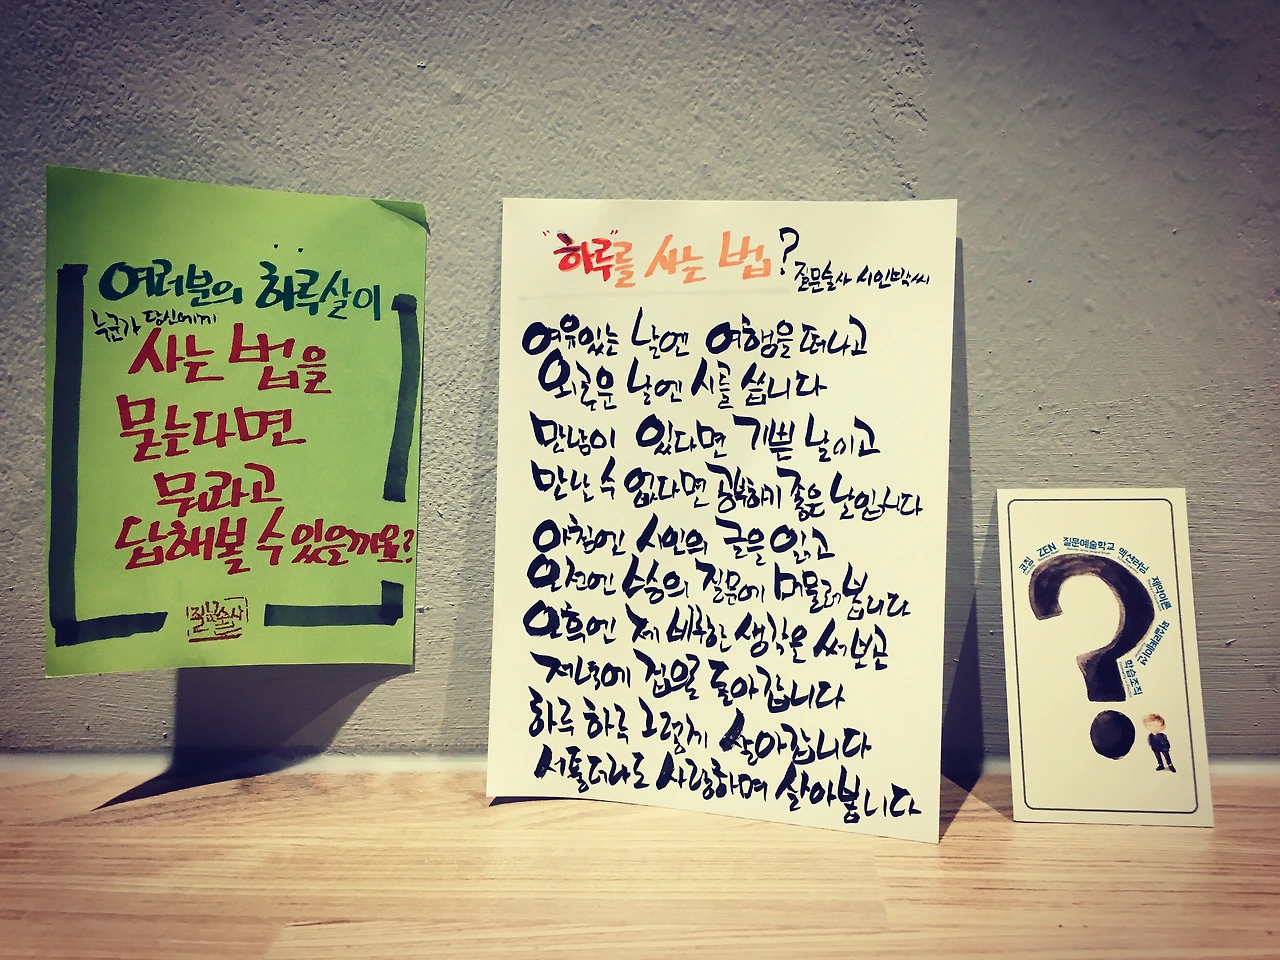 여러분의 하루살이
누군가 당신에게
사는 법을
묻는다면
뭐라고
답해볼 수 있을까요?
질문술사
"하루"를 사는 법?
질문술사 시인박씨
여유있는 날엔 여행을 떠나고
외로운 날엔 시를 씁니다
만남이 있다면 기쁜 날이고
만난 수 없다면 공부하기 좋은 날입니다
아침엔 시인의 글을 읽고
오전엔 스승의 질문에 머물러봅니다
오후엔 제 비루한 생각을 써보곤
저녁에 집으로 돌아갑니다
하루 하루 그렇게 살아갑니다
서툴더라도 사랑하며 살아봅니다
코칭 ZEN 질문예술학교 액션러닝 제약이론 퍼실리테이션 학습조직
?